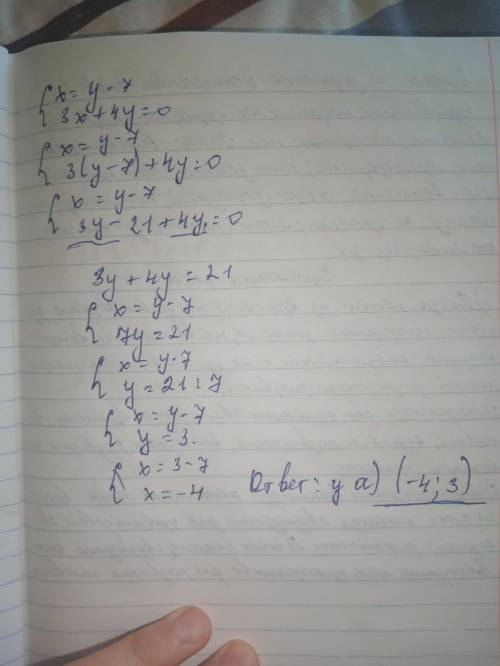 { x = y - 7
3x + 4y = 0
{ x = y - 7
3(y - 7) + 4y = 0
{ x = y - 7
3y - 21 + 4y = 0
3y + 4y = 21
{ x = y - 7
7y = 21
{ x = y - 7
y = 21 : 7
{ x = y - 7
y = 3.
{ x = 3 - 7
x = -4
Ответ: у а) (-4; 3)